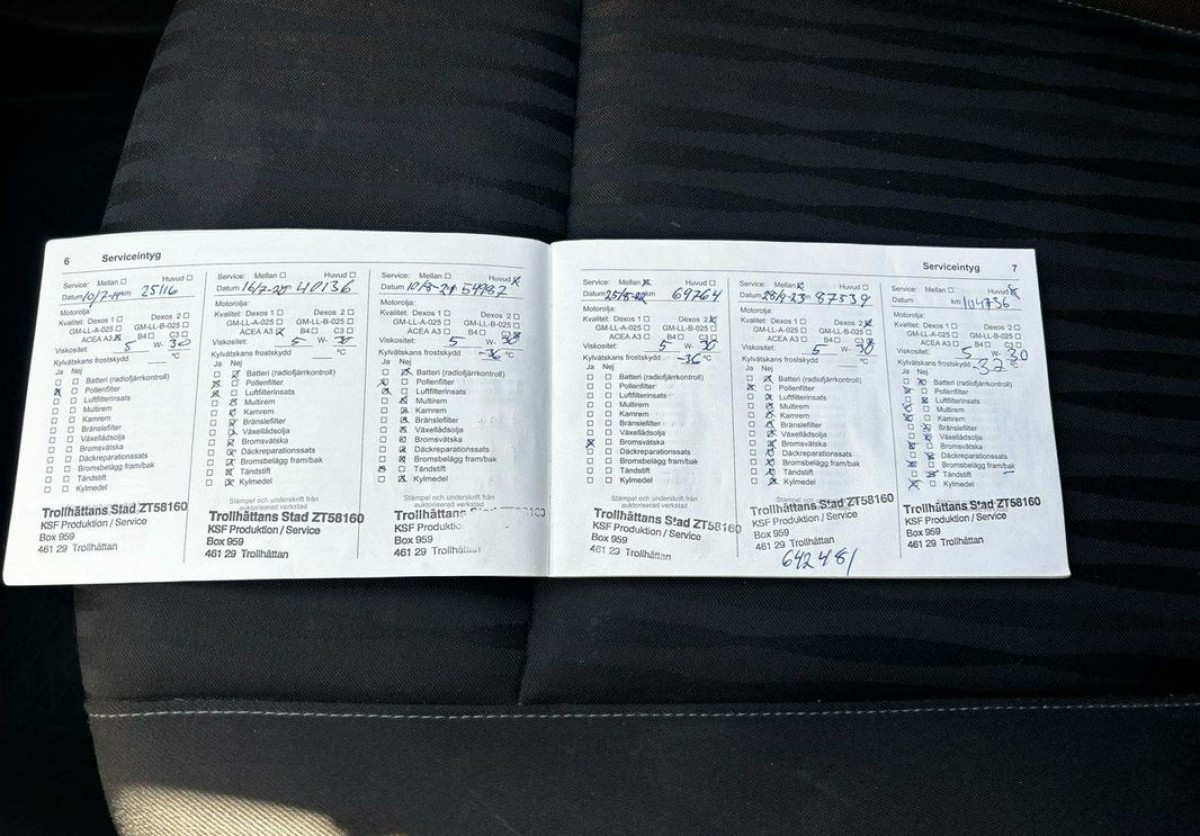 6 Serviceintyg
Service: Mellan ☐ Huvud ☐
Datum 10/7-19 km 25116
Motorolja:
Kvalitet: Dexos 1 ☐ Dexos 2 ☐
GM-LL-A-025 ☐ GM-LL-B-025 ☐
ACEA A3 ☒ B4 ☐ C3 ☐
Viskositet: 5 W- 30
Kylvätskans frostskydd °C
Ja Nej
Batteri (radiofjärrkontroll)
Pollenfilter
Luftfilterinsats
Multirem
Kamrem
Bränslefilter
Växellådsolja
Bromsvätska
Däckreparationssats
Bromsbelägg fram/bak
Tändstift
Kylmedel
Trollhättans Stad ZT58160
KSF Produktion / Service
Box 959
461 29 Trollhättan
Service: Mellan ☐ Huvud ☐
Datum 16/7-20 40136
Motorolja:
Kvalitet: Dexos 1 ☐ Dexos 2 ☐
GM-LL-A-025 ☐ GM-LL-B-025 ☐
ACEA A3 ☒ B4 ☐ C3 ☐
Viskositet: 5 W- 30
Kylvätskans frostskydd °C
Ja Nej
Batteri (radiofjärrkontroll)
Pollenfilter
Luftfilterinsats
Multirem
Kamrem
Bränslefilter
Växellådsolja
Bromsvätska
Däckreparationssats
Bromsbelägg fram/bak
Tändstift
Kylmedel
Stämpel och underskrift från
auktoriserad verkstad
Trollhättans Stad ZT58160
KSF Produktion / Service
Box 959
461 29 Trollhättan
Service: Mellan ☐ Huvud ☒
Datum 10/8-21 54987
Motorolja:
Kvalitet: Dexos 1 ☐ Dexos 2 ☐
GM-LL-A-025 ☐ GM-LL-B-025 ☐
ACEA A3 ☐ B4 ☐ C3 ☒
Viskositet: 5 W- 30
Kylvätskans frostskydd -36 °C
Ja Nej
Batteri (radiofjärrkontroll)
Pollenfilter
Luftfilterinsats
Multirem
Kamrem
Bränslefilter
Växellådsolja
Bromsvätska
Däckreparationssats
Bromsbelägg fram/bak
Tändstift
Kylmedel
Stämpel och underskrift från
auktoriserad verkstad
Trollhättans
KSF Produktio
Box 959
461 29 Trollhättan
Serviceintyg 7
Service: Mellan ☒ Huvud ☐
Datum 25/8-22 km 69764
Motorolja:
Kvalitet: Dexos 1 ☐ Dexos 2 ☒
GM-LL-A-025 ☐ GM-LL-B-025 ☐
ACEA A3 ☐ B4 ☐ C3 ☐
Viskositet: 5 W- 30
Kylvätskans frostskydd -36 °C
Ja Nej
Batteri (radiofjärrkontroll)
Pollenfilter
Luftfilterinsats
Multirem
Kamrem
Bränslefilter
Växellådsolja
Bromsvätska
Däckreparationssats
Bromsbelägg fram/bak
Tändstift
Kylmedel
Stämpel och underskrift från
auktoriserad verkstad
Trollhättans Stad ZT58160
KSF Produktion / Service
Box 959
461 29 Trollhättan
Service: Mellan ☒ Huvud ☐
Datum 28/9-23 87539
Motorolja:
Kvalitet: Dexos 1 ☐ Dexos 2 ☒
GM-LL-A-025 ☐ GM-LL-B-025 ☐
ACEA A3 ☐ B4 ☐ C3 ☒
Viskositet: 5 W- 30
Kylvätskans frostskydd °C
Ja Nej
Batteri (radiofjärrkontroll)
Pollenfilter
Luftfilterinsats
Multirem
Kamrem
Bränslefilter
Växellådsolja
Bromsvätska
Däckreparationssats
Bromsbelägg fram/bak
Tändstift
Kylmedel
Trollhättans Stad ZT58160
KSF Produktion / Service
Box 959
461 29 Trollhättan
642481
Service: Mellan ☐ Huvud ☒
Datum km 104736
Motorolja:
Kvalitet: Dexos 1 ☐ Dexos 2 ☐
GM-LL-A-025 ☐ GM-LL-B-025 ☐
ACEA A3 ☐ B4 ☐ C3 ☐
Viskositet: 5 W- 30
Kylvätskans frostskydd -32 °C
Ja Nej
Batteri (radiofjärrkontroll)
Pollenfilter
Luftfilterinsats
Multirem
Kamrem
Bränslefilter
Växellådsolja
Bromsvätska
Däckreparationssats
Bromsbelägg fram/bak
Tändstift
Kylmedel
Trollhättans Stad ZT58160
KSF Produktion / Service
Box 959
461 29 Trollhättan